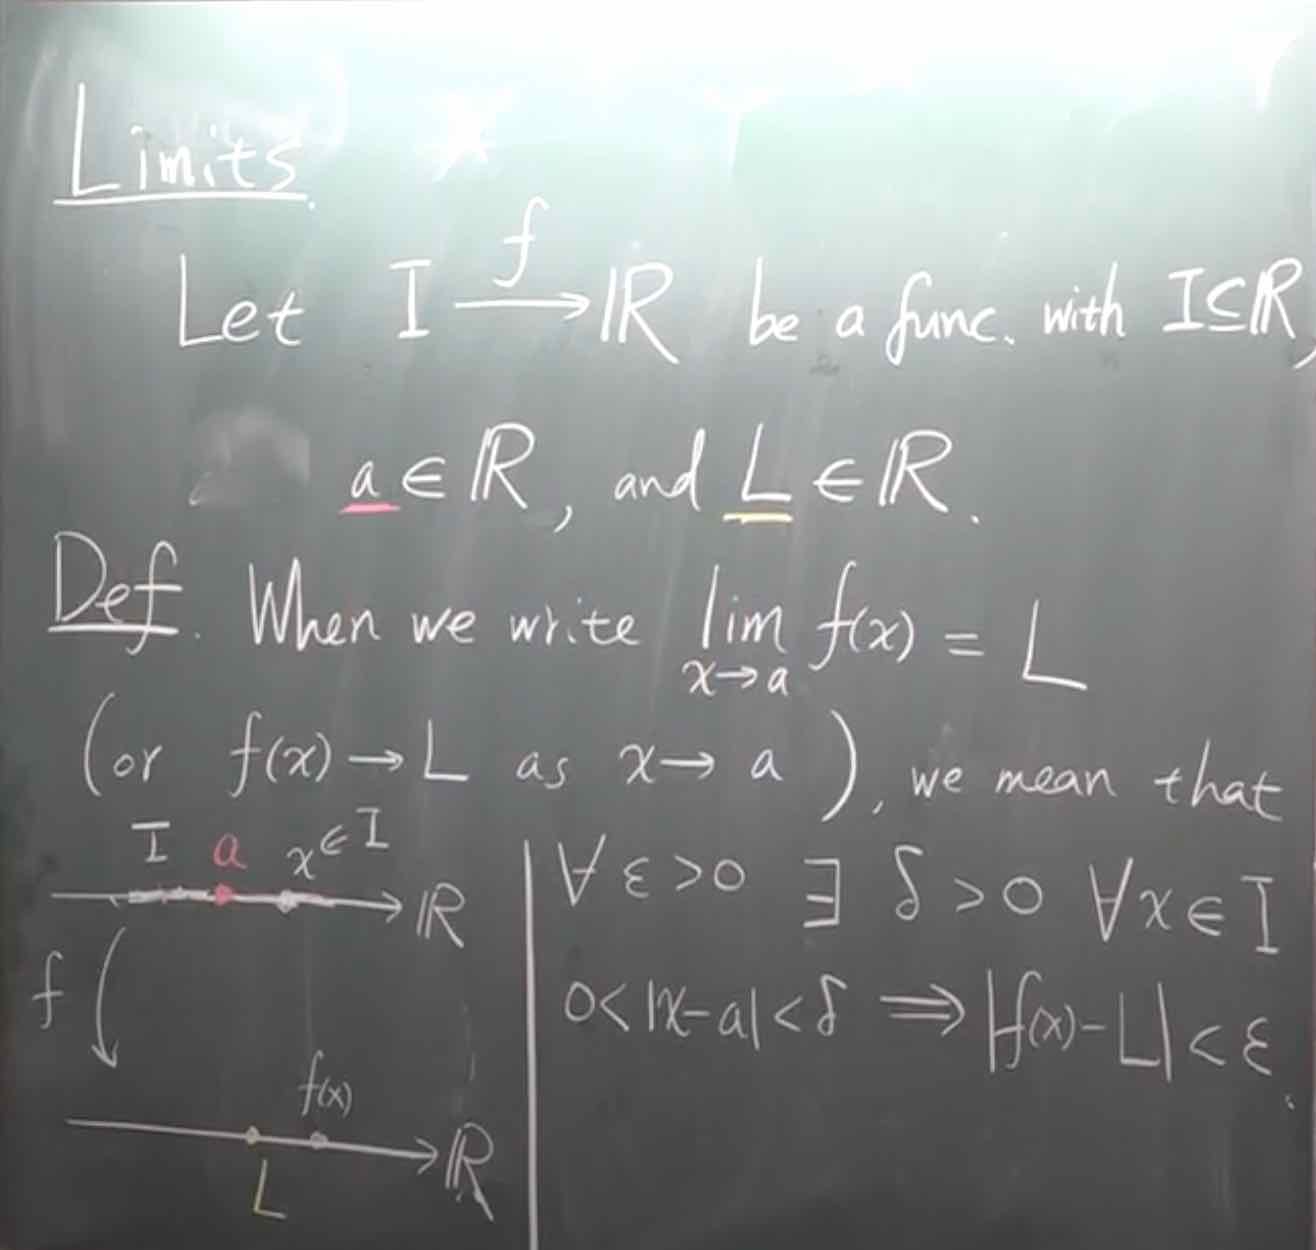 Limits.
Let I —f→ ℝ be a func. with I⊆ℝ,
a∈ℝ, and L∈ℝ.
Def. When we write lim_{x→a} f(x) = L
(or f(x)→L as x→a), we mean that
I a x∈I
ℝ
f
f(x)
ℝ
L
∀ε>0 ∃δ>0 ∀x∈I
0<|x-a|<δ ⟹ |f(x)-L|<ε.